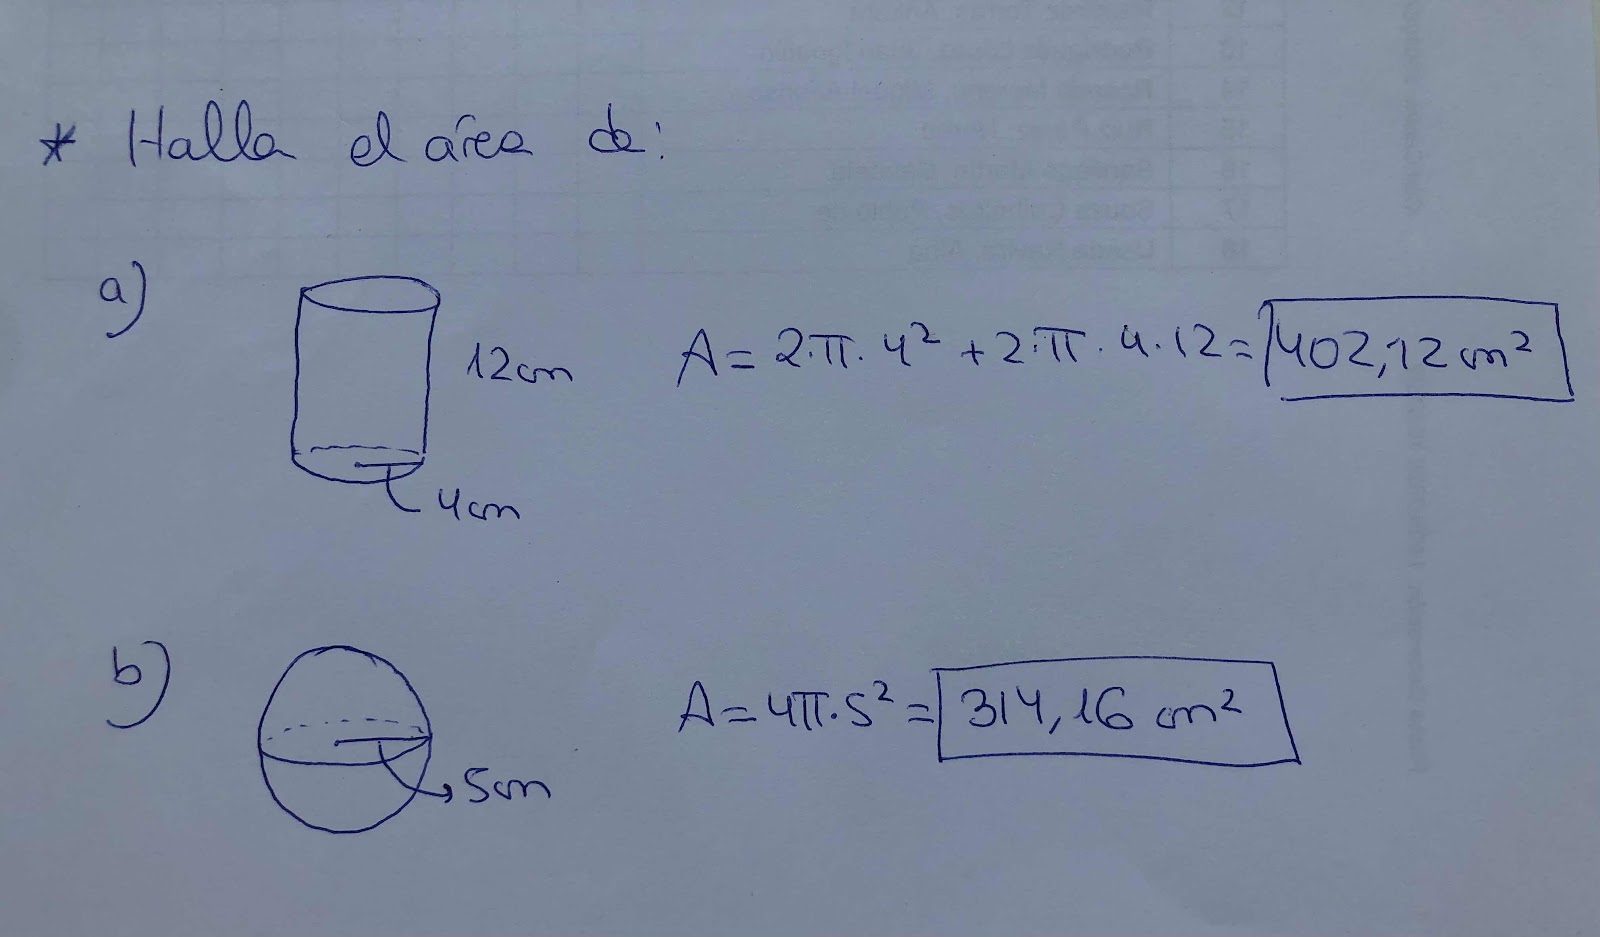 * Halla el área de:
a)
12cm
A = 2·π·4² + 2·π·4·12 = 402,12 cm²
4cm
b)
A = 4π·5² = 314,16 cm²
5cm